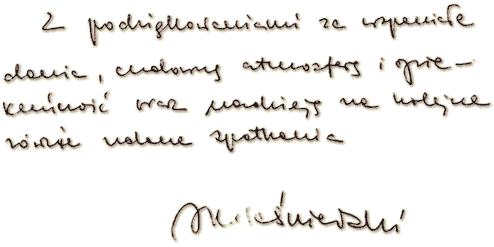 Z podziękowaniami za wspaniałe
dania, cudowną atmosferę i opie-
kuńczość oraz nadzieją na kolejne
równie udane spotkania